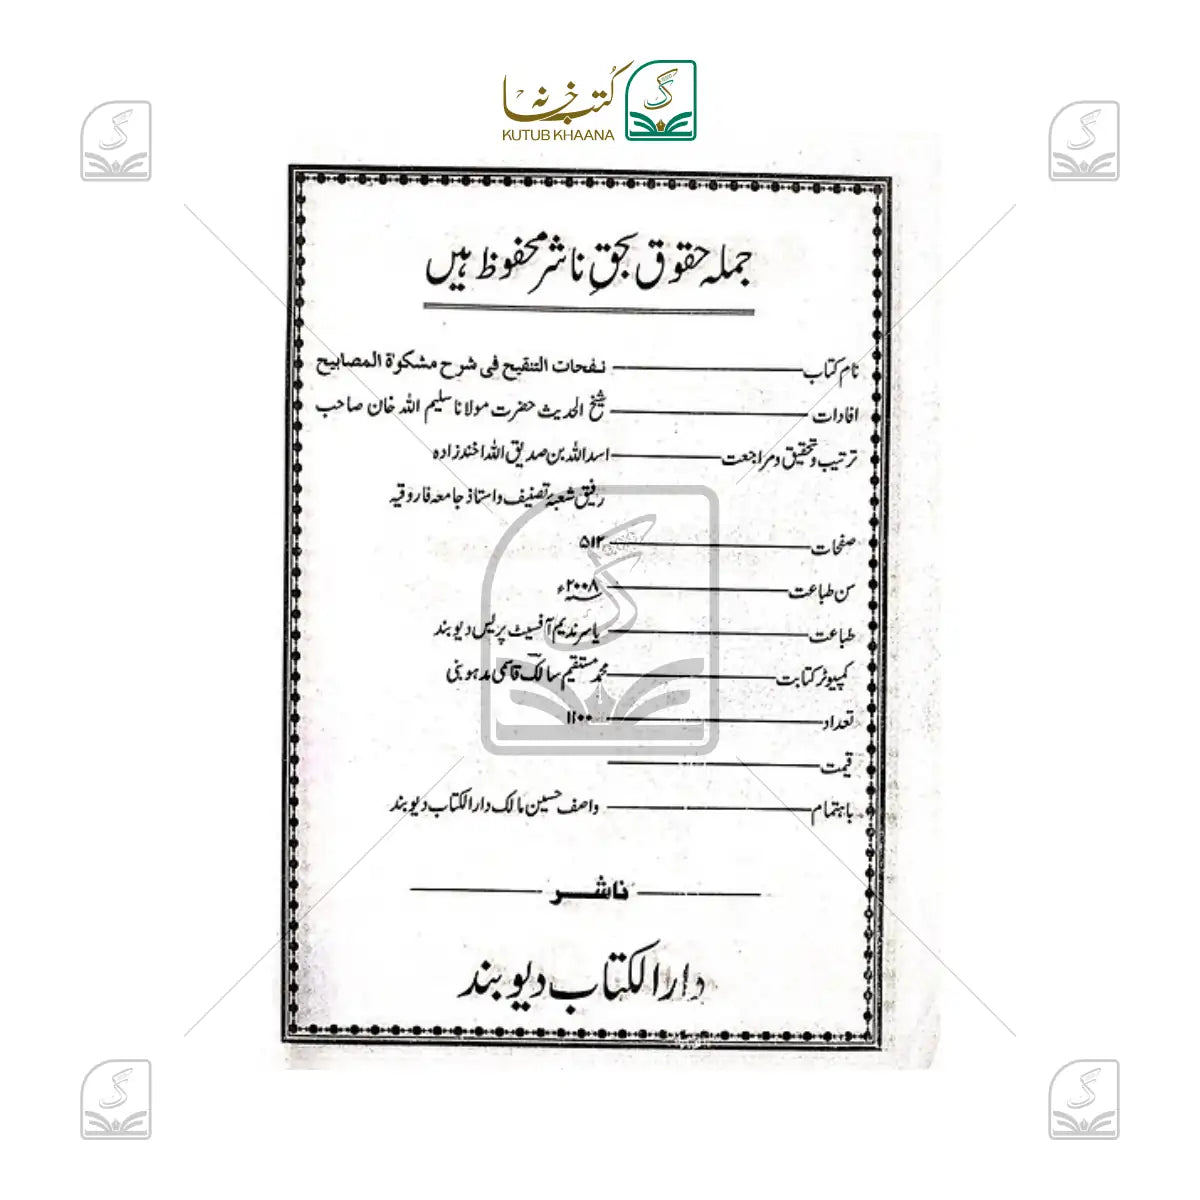 کتب خانہ
KUTUB KHAANA
جملہ حقوق بحقِ ناشر محفوظ ہیں
نام کتاب نفحات التنقیح فی شرح مشکوٰۃ المصابیح
افادات شیخ الحدیث حضرت مولانا سلیم اللہ خان صاحب
ترتیب و تحقیق و مراجعت اسد اللہ بن صدیق اللہ اخند زادہ
رفیق شعبۂ تصنیف و استاذ جامعہ فاروقیہ
صفحات ۵۱۲
سن طباعت ۲۰۰۸ء
طباعت یاسر ندیم آفسیٹ پریس دیوبند
کمپیوٹر کتابت محمد مستقیم سالکؔ قاسمی مدہوبنی
تعداد ۱۱۰۰
قیمت
باہتمام واصف حسین مالک دار الکتاب دیوبند
ناشر
دار الکتاب دیوبند